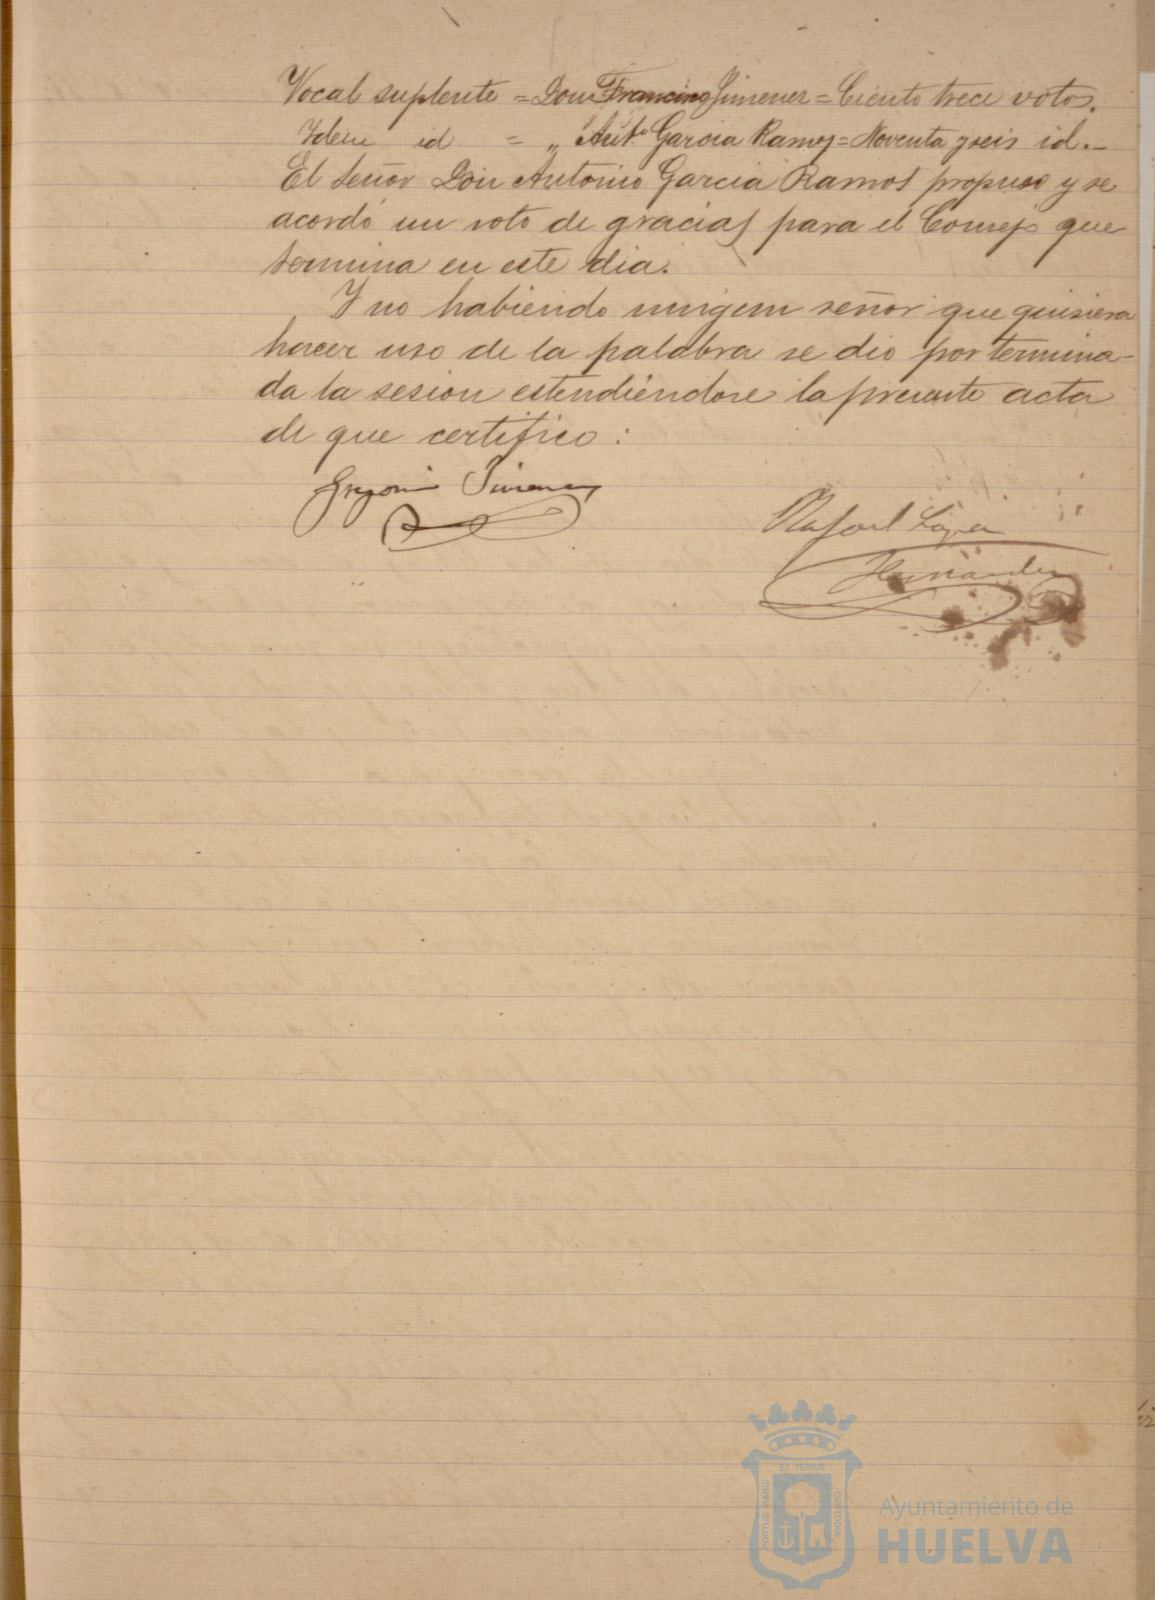 Vocal suplente = Don Francisco Jimenez = Ciento trece votos.
Idem id = „ Antº Garcia Ramos = Noventa y seis id. –
El Señor Don Antonio Garcia Ramos propuso y se
acordó un voto de gracias para el Consejo que
termina en este dia.
Y no habiendo ningun señor que quisiera
hacer uso de la palabra se dio por termina-
da la sesion estendiéndose la presente acta
de que certifico:
Gregorio Jimenez
Rafael López
Hernandez
ET TERRÆ
PORTUS MARIS
CUSTODIA
Ayuntamiento de
HUELVA